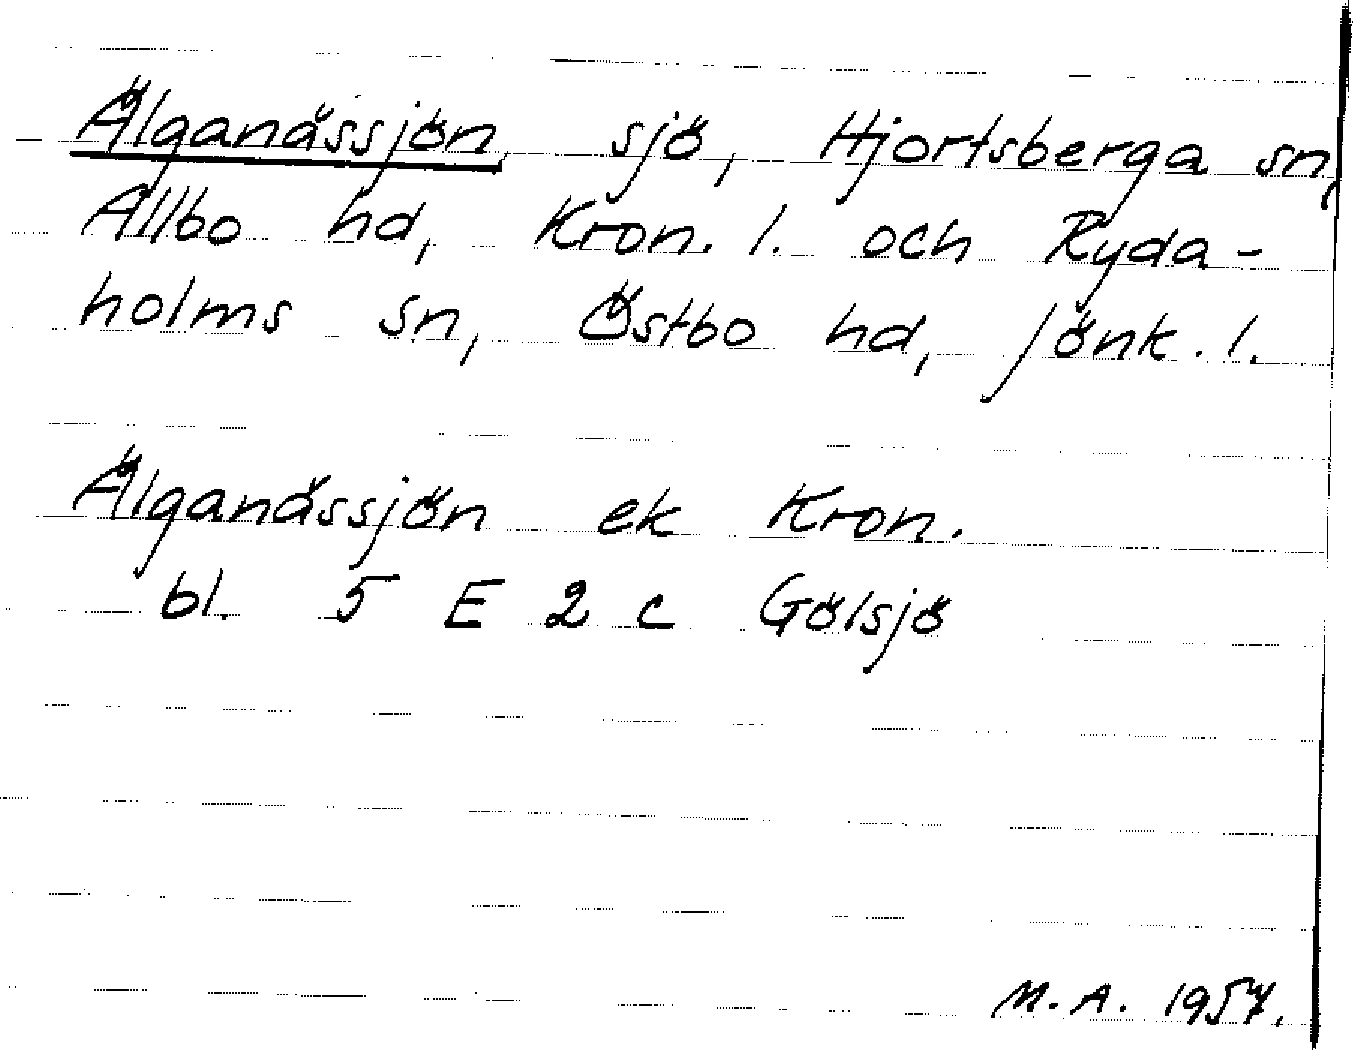 Älganässjön, sjö, Hjortsberga sn,
Allbo hd, Kron. l. och Ryda-
holms sn, Östbo hd, Jönk. l.
Älganässjön ek Kron.
bl. 5 E 2 c Gölsjö
M. A. 1957.